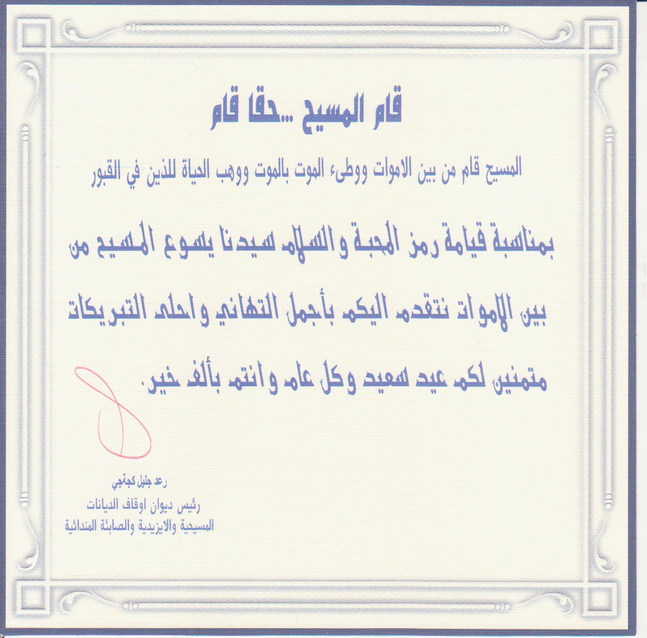 قام المسيح ...حقا قام
المسيح قام من بين الاموات ووطىء الموت بالموت ووهب الحياة للذين في القبور
بمناسبة قيامة رمز المحبة والسلام سيدنا يسوع المسيح من
بين الاموات نتقدم اليكم بأجمل التهاني واحلى التبريكات
متمنين لكم عيد سعيد وكل عام وانتم بألف خير.
رعد جليل كجةجي
رئيس ديوان اوقاف الديانات
المسيحية والايزيدية والصابئة المندائية